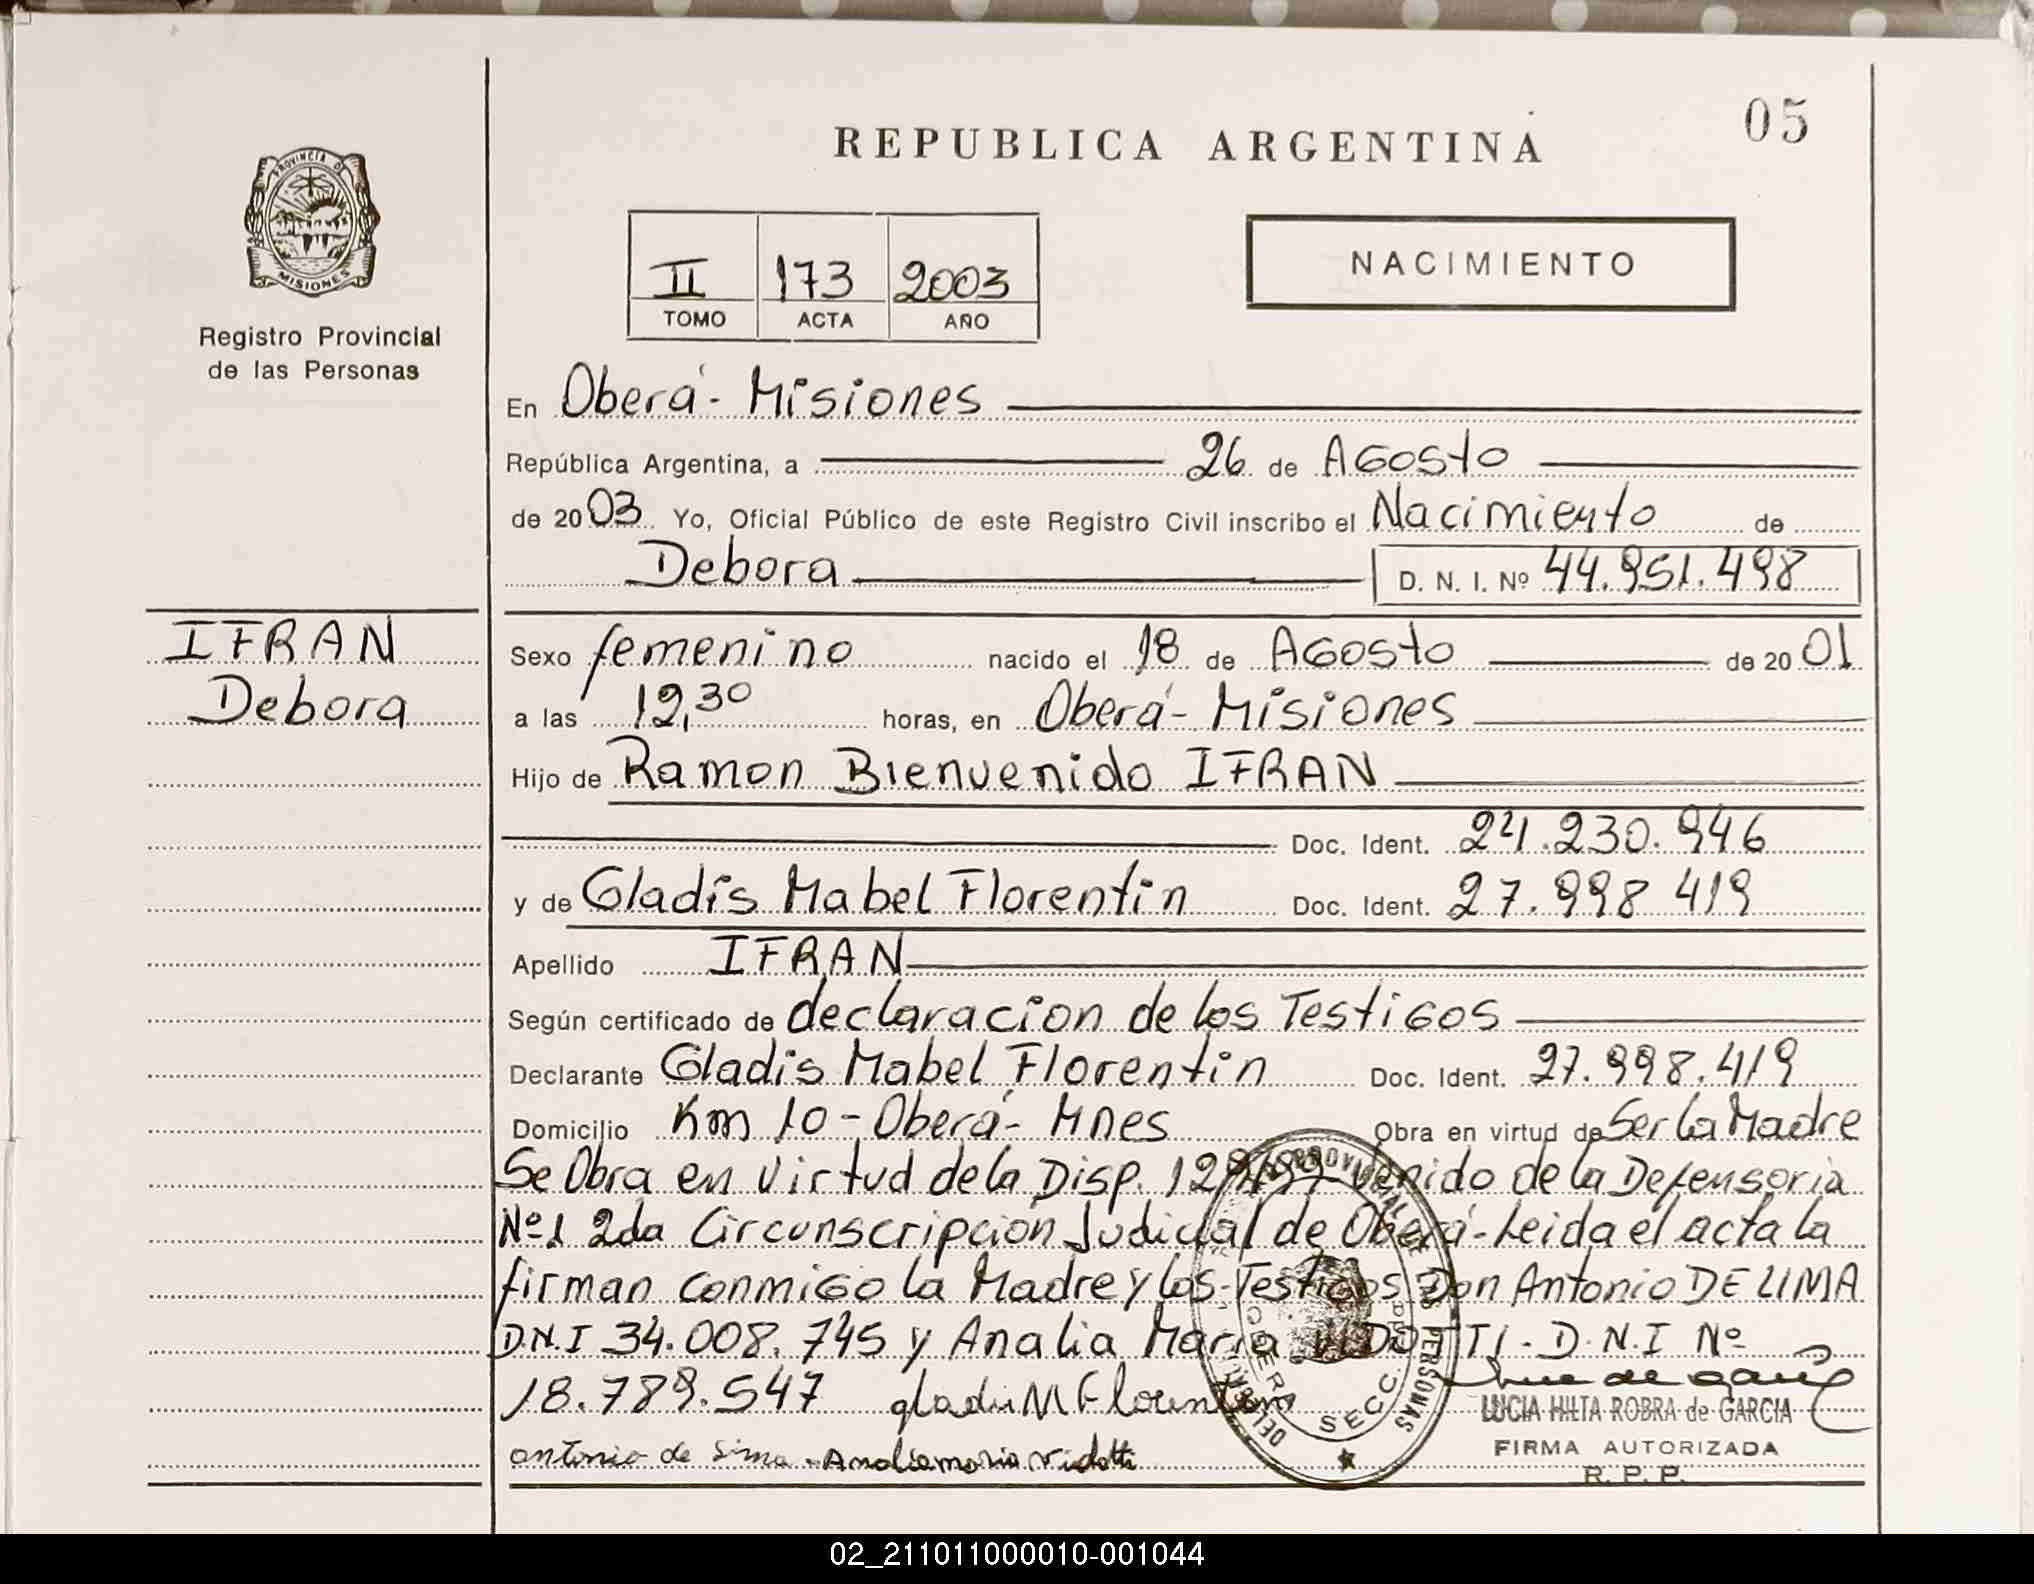 05
REPUBLICA ARGENTINA
PROVINCIA DE MISIONES
Registro Provincial
de las Personas
II 173 2003
TOMO ACTA AÑO
NACIMIENTO
En Oberá - Misiones
República Argentina, a 26 de Agosto
de 2003 Yo, Oficial Público de este Registro Civil inscribo el Nacimiento de
Debora D. N. I. Nº 44.951.498
IFRAN
Debora
Sexo femenino nacido el 18 de Agosto de 2001
a las 12,30 horas, en Oberá - Misiones
Hijo de Ramon Bienvenido IFRAN
Doc. Ident. 24.230.946
y de Gladis Mabel Florentin Doc. Ident. 27.998 419
Apellido IFRAN
Según certificado de declaracion de los Testigos
Declarante Gladis Mabel Florentin Doc. Ident. 27.998.419
Domicilio Km 10 - Oberá - Mnes Obra en virtud de Ser la Madre
Se Obra en Virtud de la Disp. venido de la Defensoria
Nº1 2da Circunscripcion Judicial de Oberá - Leida el acta la
firman conmigo la Madre y los Testigos Don Antonio DE LIMA
D.N.I 34.008.745 y Analia Maria VIDOTTI - D.N.I Nº
18.789.547 gladis M Florentin
antonio de Lima - Analia maria Vidotti
LUCIA HILTA ROBRA de GARCIA
FIRMA AUTORIZADA
R. P. P.
PROVINCIAL DE LAS PERSONAS
SECC.
02_211011000010-001044